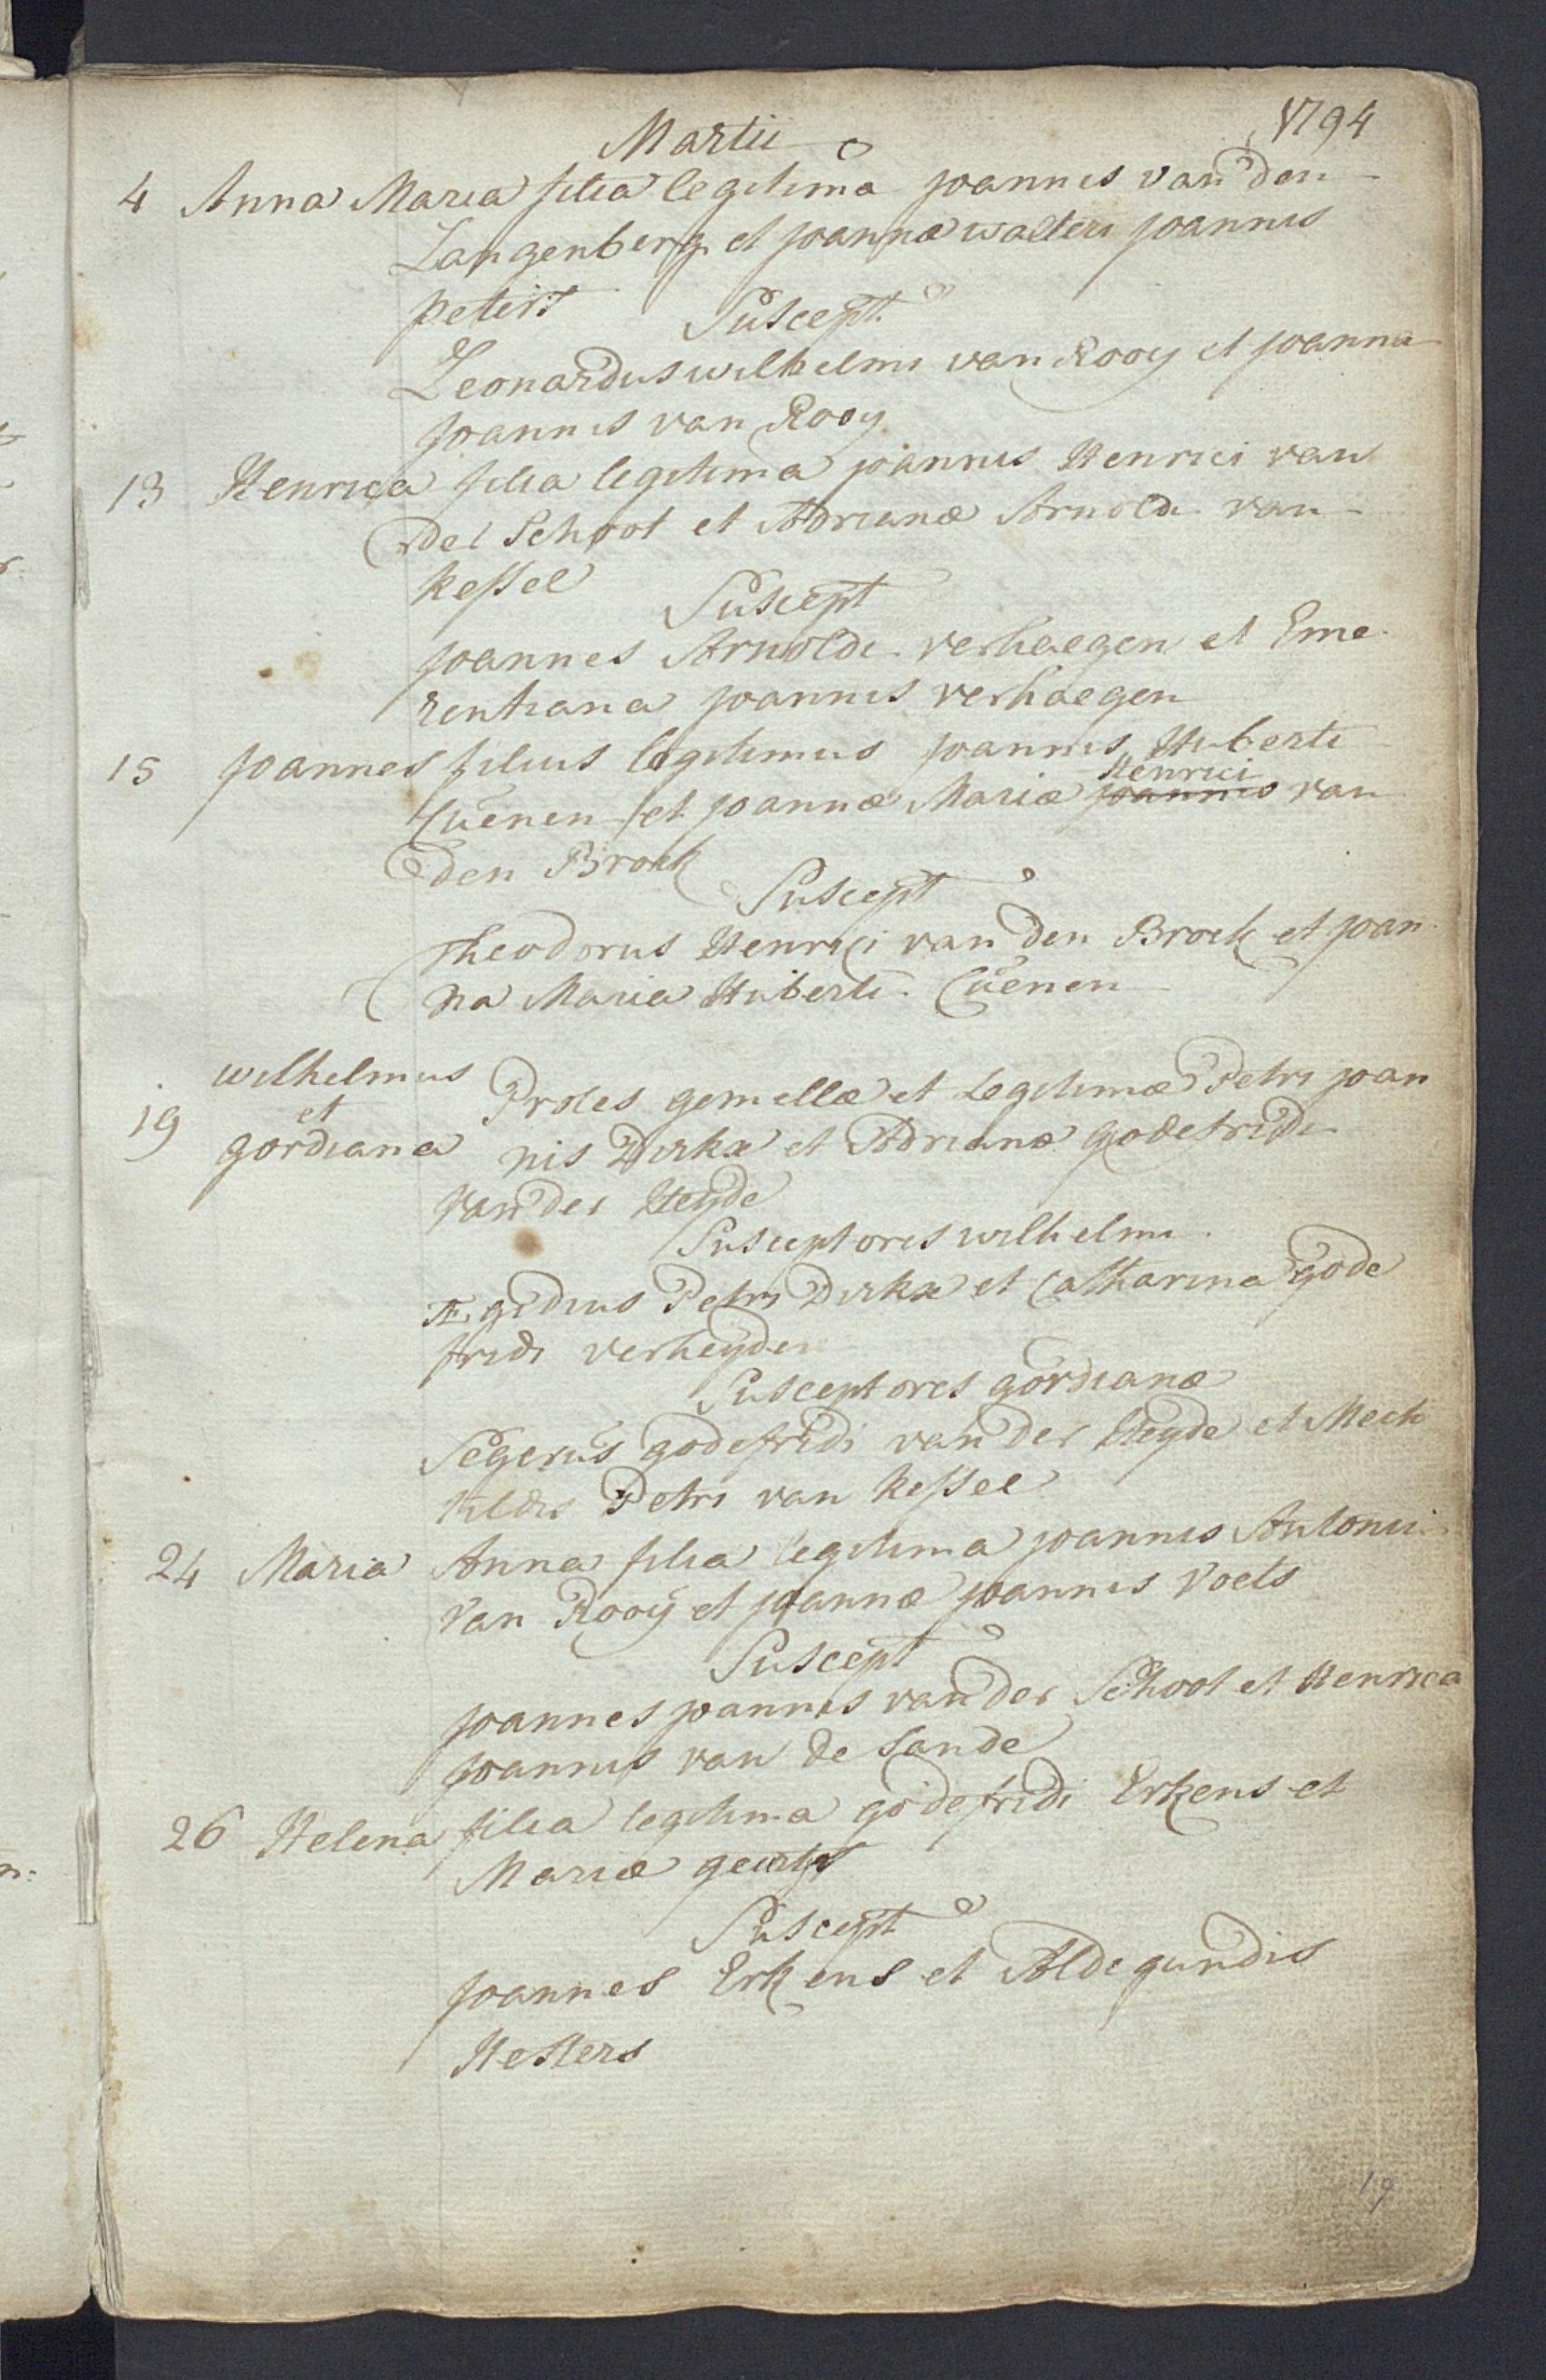 Martii 1794
4 Anna Maria filia legitima Joannis van den
Langenberg et Joannæ walteri Joannis
peters Suscept
Leonardus wilhelmi van Rooy et Joanna
Joannis van Rooy
13 Henrica filia legitima Joannis Henrici van
der Schoot et Adrianæ Arnoldi van
Kessel Suscept
Joannes Arnoldi verhaegen et Eme
rentiana Joannis verhaegen
15 Joannes filius legitimus Joannis Huberti
Henrici
Cuënen et Joannæ Mariæ Joannis van
den Broek Suscept
Theodorus Henrici van den Broek et Joan
na Maria Huberti Cuënen
wilhelmus Proles gemellæ et Legitimæ Petri Joan
19 et
gordiana nis Dirkx et Adrianæ godefridi
van der Heyde
Susceptores wilhelmi
Ægidius Petri Dirkx et Catharina gode
fridi verheyden
Susceptores gordianæ
Segerus godefridi van der Heyde et Mech
tildis Petri van Kessel
24 Maria Anna filia legitima Joannis Antonii
van Rooÿ et Joannæ Joannis Voets
Suscept
Joannes Joannis van der Schoot et Henrica
Joannis van de Sande
26 Helena filia legitima godefridi Erkens et
Mariæ
Suscept
Joannes Erkens et Aldegundis
Hesters
19